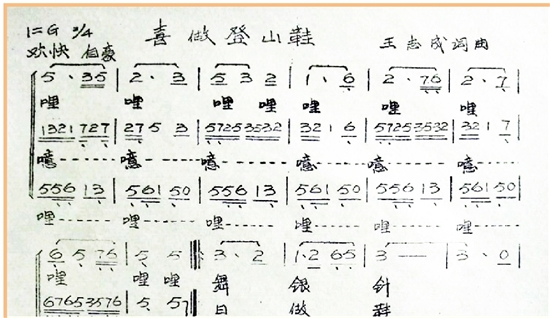 1=G 3/4 喜做登山鞋
欢快 自豪 王志成词曲
5· 35 | 2· 3 | 5 3 2 | 1· 6 | 2· 76 | 2· 7 |
哩 哩 哩 哩 哩 哩
1321 727 | 27 5 3 | 5725 3532 | 32 1 6 | 5725 3532 | 32 1 7 |
噫 噫 噫 噫 噫 噫
556 13 | 561 50 | 556 13 | 561 50 | 556 13 | 561 50 |
哩 哩 哩 哩 哩 哩
6 5 76 | 5· 5 | 3· 2 | 1·2 65 | 3 — — | 3· 0 |
哩 哩 哩 舞 银 针
6765 3576 | 5· 57 日 做 鞋